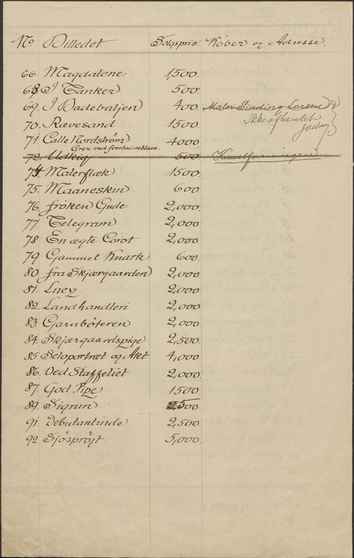 No Billedet Salgspris Køber og Adresse.
66. Magdalene 1500
68. I Tanker 500
69. I Badebaljen 400 Maler
70. Rævesand 1500
71 Calle Nordström 4000
72. Udkig 500 Kunstforeningen
74 Malerflæk 1500
75. Maaneskin 600
76. Frøken Gude 2,000
77 Telegram 2,000
78 En ægte Corot 2,000
79 Gammel Knark 600
80. Fra Skjærgaarden 2,000
81. Lucy 2,000
82. Landhandleri 2,000
83 Garnbøteren 2,000
84. Skjærgaardspige 2,500
85 Selvportræt og Atet 4,000
86. Ved Staffeliet 2,000
87. God Pipe 1500
89. Sigrun 500
91. Debutantinde 2,500
92. Sjösprøjt 5,000